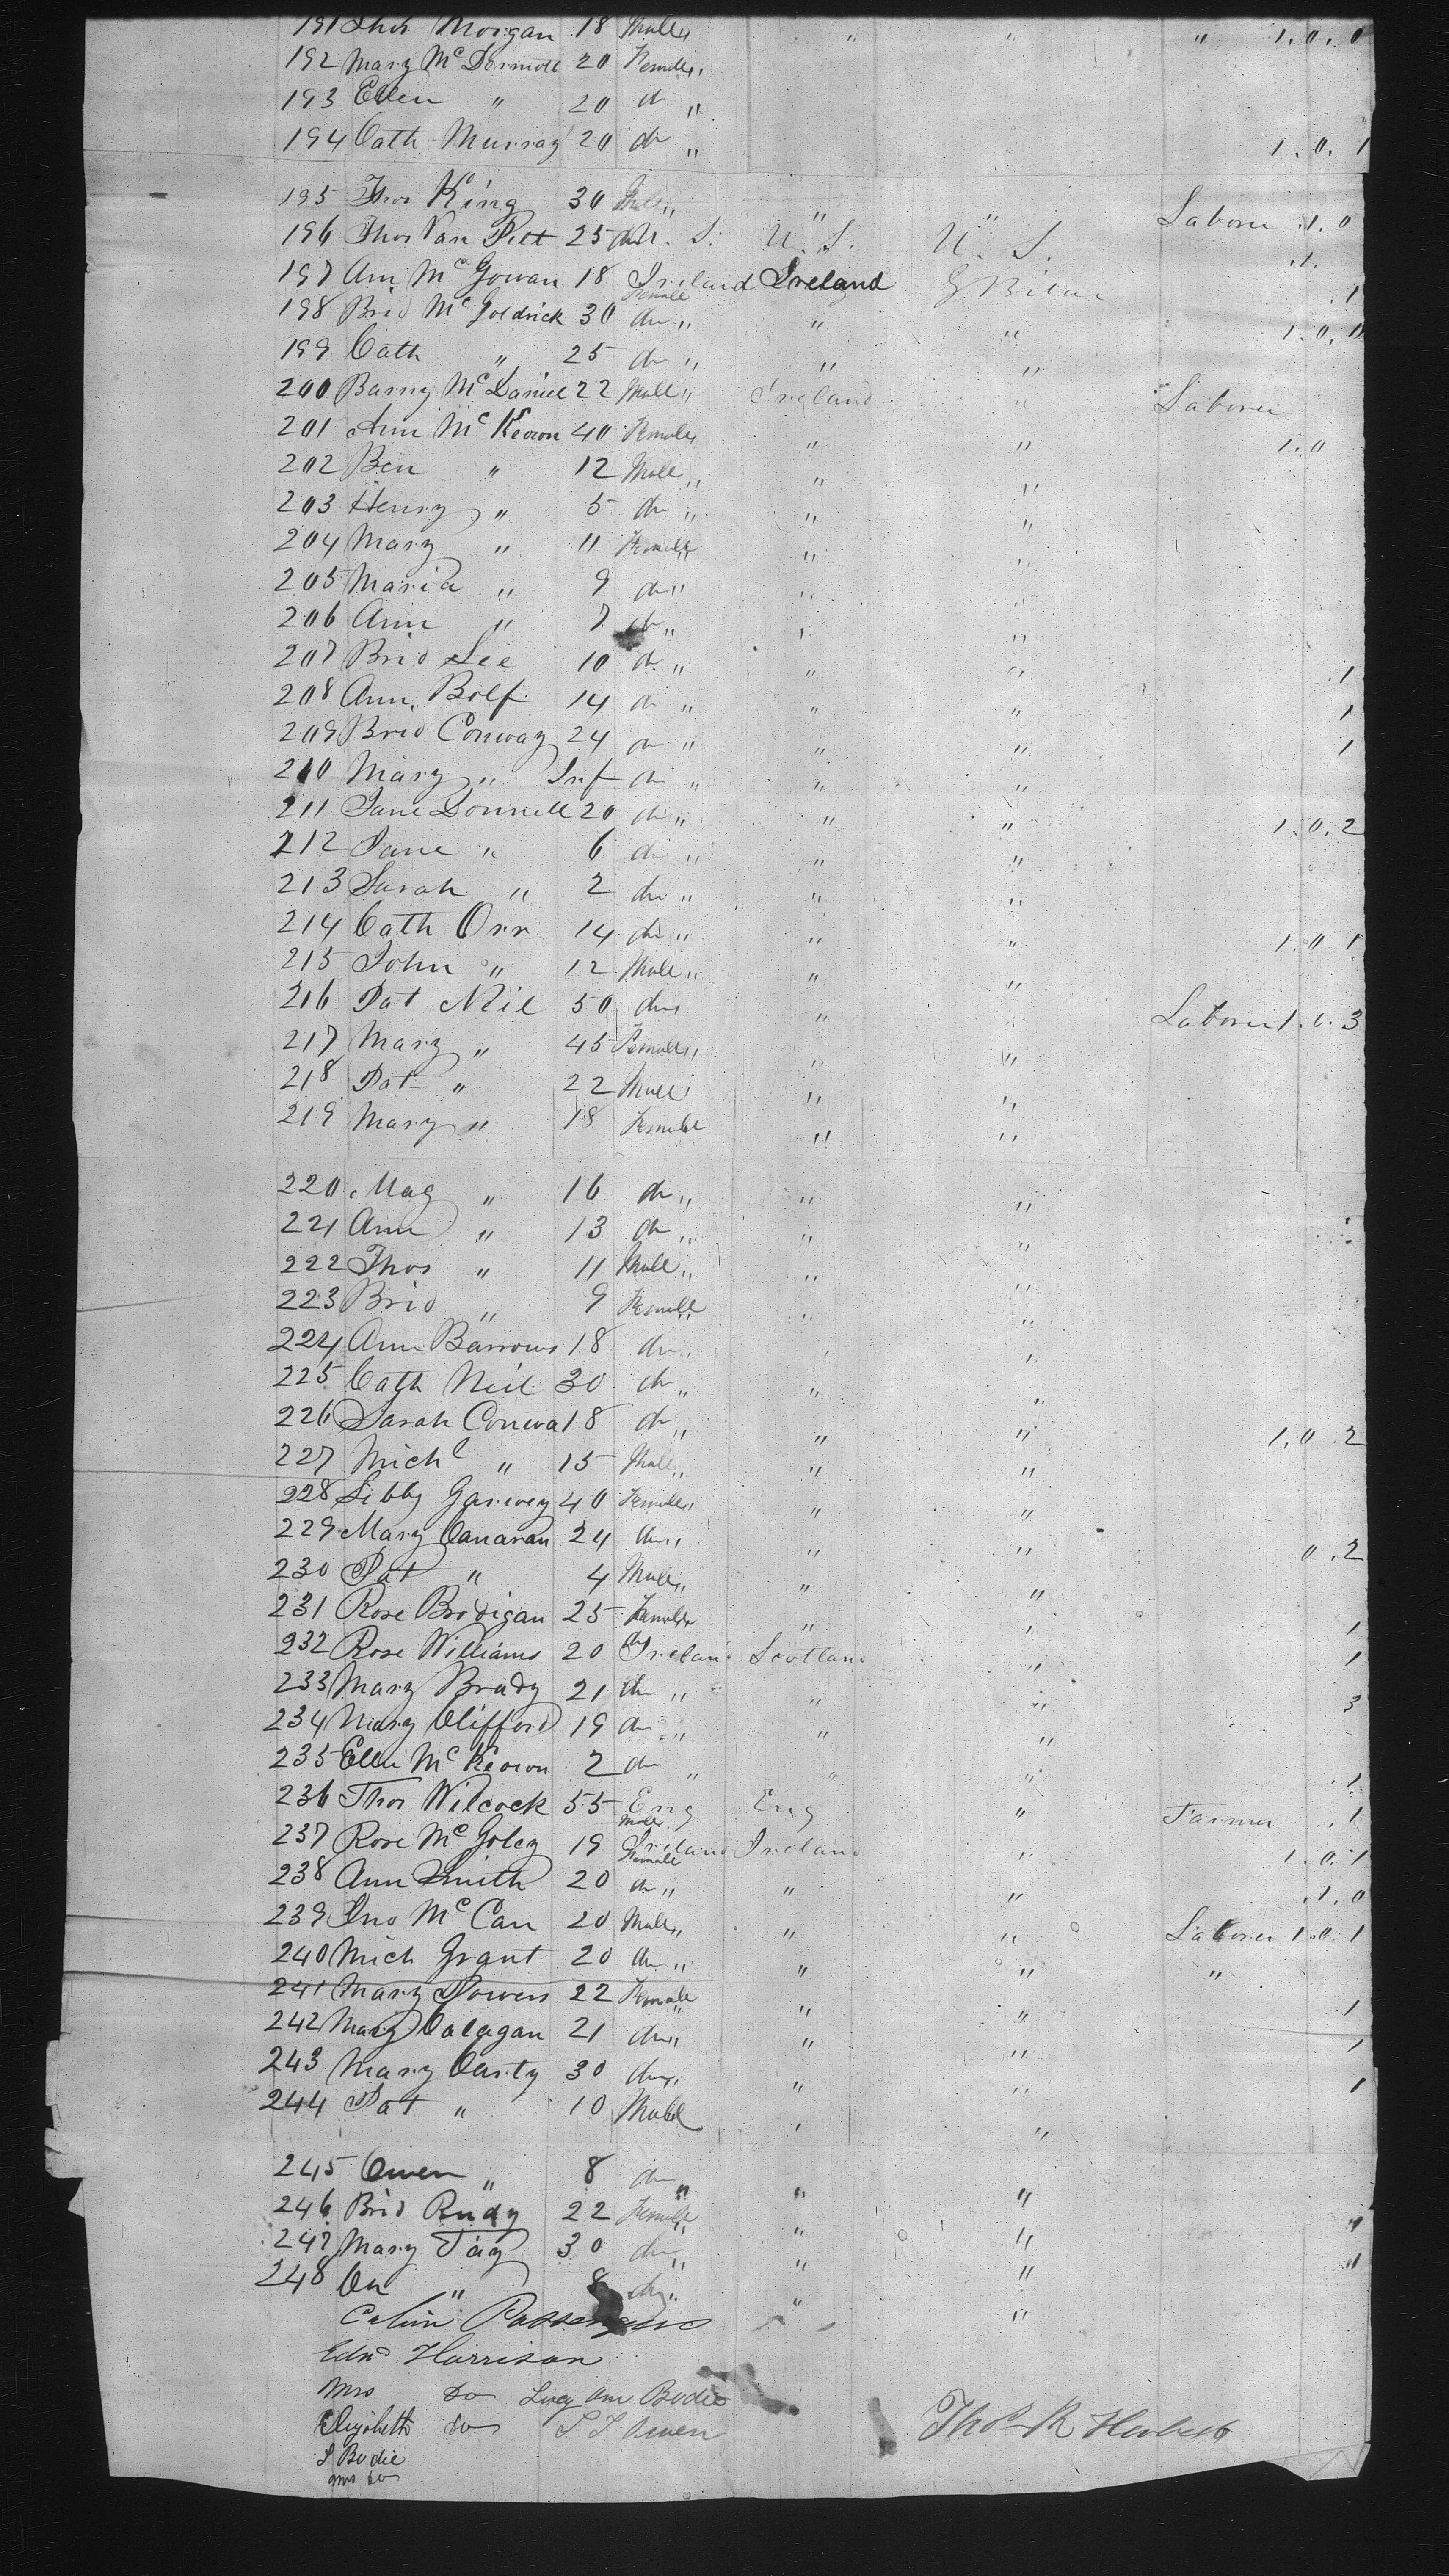 191 Thos Morgan 18 Male " " " " 1.0.0
192 Mary McDermott 20 Female "
193 Ellen " 20 do "
194 Cath Murray 20 do " 1.0.1
195 Thos King 30 Male " " " Laborer .1.0
196 Thos Van Pelt 25 do U.S. U.S. U.S. .1.
197 Ann McGowan 18 Ireland Female Ireland .1
198 Brid McGoldrick 30 do " " " 1.0.0
199 Cath " 25 do " " "
200 Barny McDaniel 22 Male " Ireland " Laborer
201 Ann McKeown 40 Female " " " 1.0
202 Ben " 12 Male " " "
203 Henry " 5 do " " "
204 Mary " 11 Female " " "
205 Maria " 9 do " " "
206 Ann " 7 do " " "
207 Brid Lee 10 do " " " 1
208 Ann Bolf 14 do " " " 1
209 Brid Conway 24 do " " " 1
210 Mary " Inf do " " "
211 Jane Donnell 20 do " " " 1.0.2
212 Jane " 6 do " " "
213 Sarah " 2 do " " "
214 Cath Orr 14 do " " " 1.0.1
215 John " 12 Male " " "
216 Pat Neil 50 do " " " Laborer 1.0.3
217 Mary " 45 Female " " "
218 Pat " 22 Male " " "
219 Mary " 18 Female " "
220 Mag " 16 do " " "
221 Ann " 13 do " " "
222 Thos " 11 Male " " "
223 Brid " 9 Female " " "
224 Ann Barrows 18 do " " "
225 Cath Neil 30 do " " "
226 Sarah Conwa 18 do " " " 1.0.2
227 Michl " 15 Male " " "
228 Libby Garvey 40 Female " " "
229 Mary Canavan 24 do " " " 0.2
230 Pat " 4 Male " " "
231 Rose Brodigan 25 Female " " " 1
232 Rose Williams 20 do Ireland Scotland " 1
233 Mary Brady 21 do " " " 3
234 Mary Clifford 19 do " " "
235 Ellen McKeown 2 do " " " .1
236 Thos Wilcock 55 Eng Male Eng " Farmer .1
237 Rose McGoley 19 Ireland Female Ireland " 1.0.1
238 Ann Smith 20 do " " " .1.0
239 Jno McCan 20 Male " " " Laborer 1.0.1
240 Mich Grant 20 do " " " "
241 Mary Powers 22 Female " " " 1
242 Mary Calagan 21 do " " " 1
243 Mary Carty 30 do " " " 1
244 Pat " 10 Male " "
245 Owen " 8 do " " "
246 Brid Rudy 22 Female " " " "
247 Mary Tay 30 do " " " "
248 " 8 do " " "
Cabin Passengers
Edwd Harrison
Mrs do Lucy Ann Bodie
Elizabeth do S J Owen
S Bodie
Mrs do
Thos R Herbert